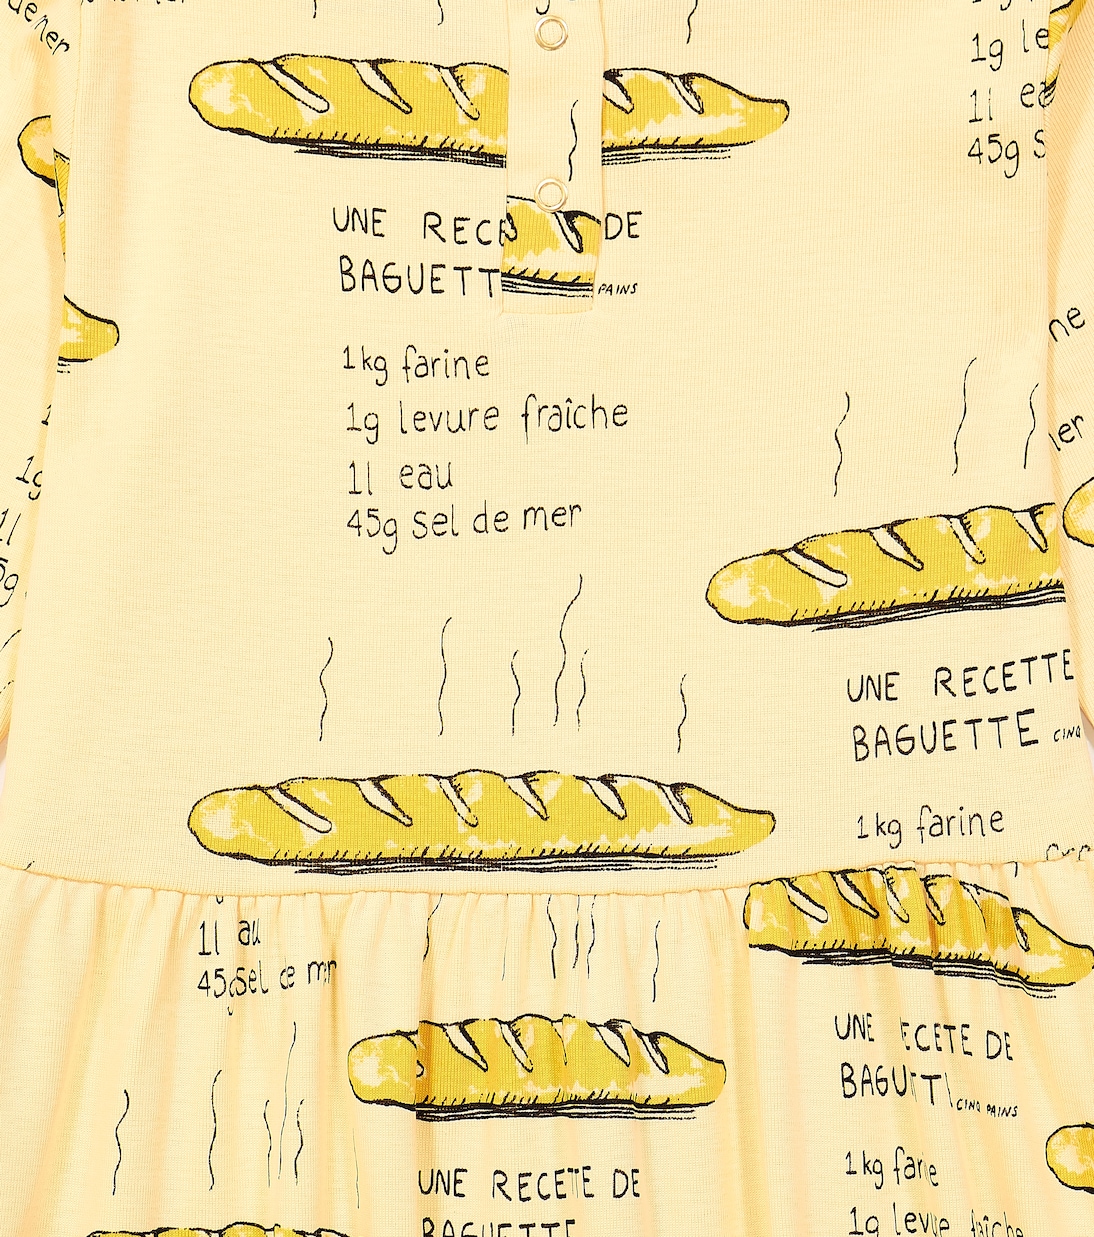 1g le
1l ea
45g s
UNE RECE DE
BAGUETT PAINS
1kg farine
1g levure fraîche
1l eau
45g sel de mer
UNE RECETTE
BAGUETTE CINQ
1kg farine
1l au
45g sel de mer
UNE ECETE DE
BAGUETT CINQ PAINS
1kg farine
1g levure fraîche
UNE RECETE DE
BAGUETTE